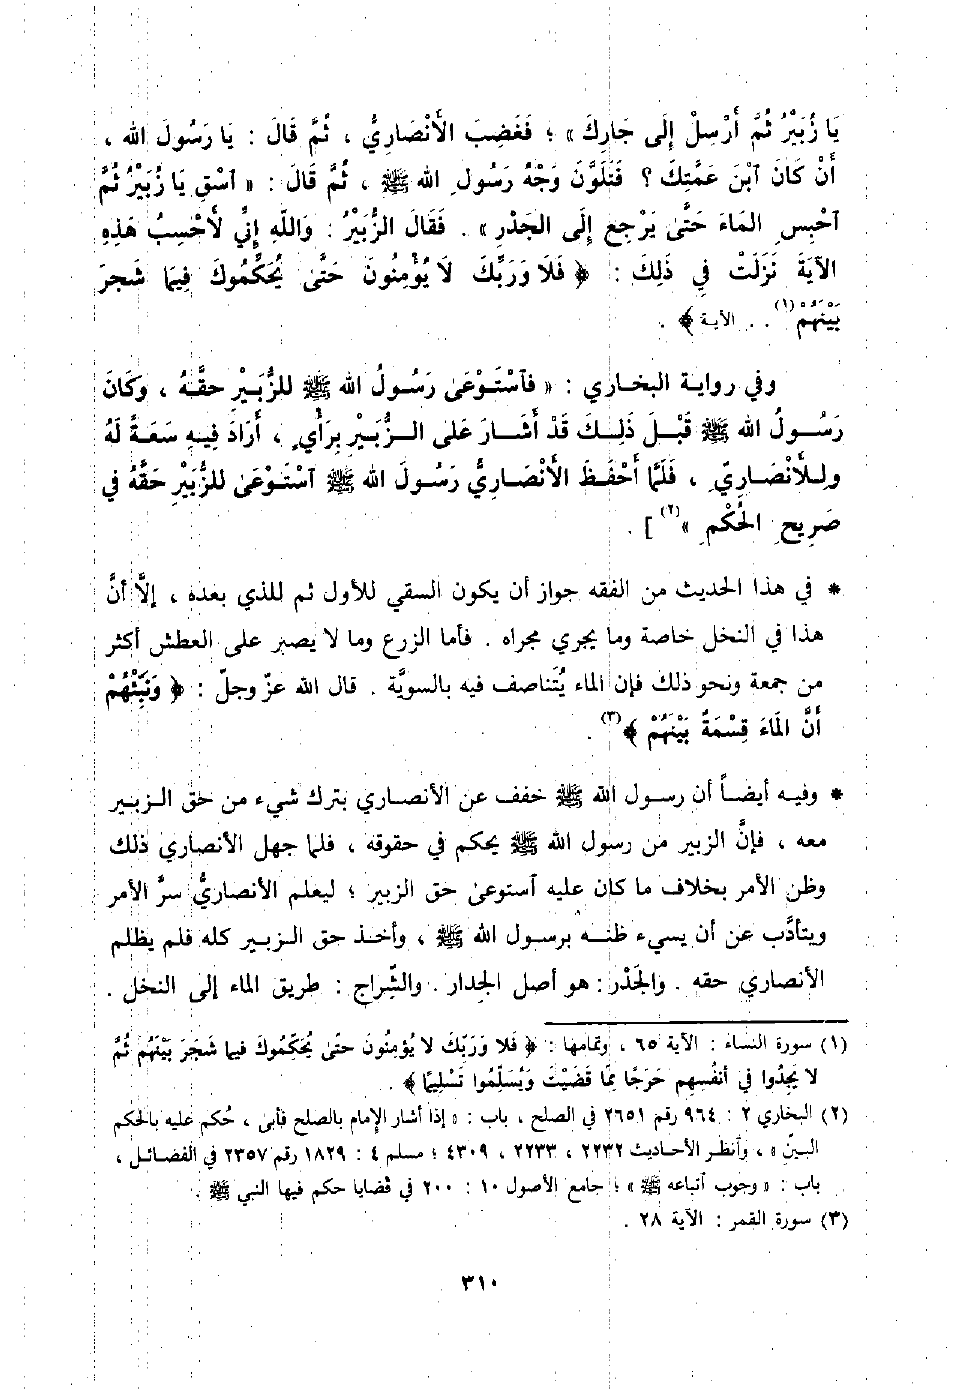 يَا زُبَيْرُ ثُمَّ أَرْسِلْ إِلَى جَارِكَ » ؛ فَغَضِبَ الأَنْصَارِيُّ ، ثُمَّ قَالَ : يَا رَسُولَ الله ،
أَنْ كَانَ ٱبْنَ عَمَّتِكَ ؟ فَتَلَوَّنَ وَجْهُ رَسُولِ الله ﷺ ، ثُمَّ قَالَ : « ٱسْقِ يَا زُبَيْرُ ثُمَّ
ٱحْبِسِ المَاءَ حَتَّىٰ يَرْجِعَ إِلَى الجَدْرِ » . فَقَالَ الزُّبَيْرُ : وَاللَّهِ إِنِّي لَأَحْسِبُ هَذِهِ
الآيَةَ نَزَلَتْ فِي ذَلِكَ : ﴿ فَلَا وَرَبِّكَ لَا يُؤْمِنُونَ حَتَّىٰ يُحَكِّمُوكَ فِيمَا شَجَرَ
بَيْنَهُمْ (١) . . الآية ﴾ .
وفي رواية البخاري : « فَٱسْتَوْعَىٰ رَسُولُ الله ﷺ للزُّبَيْرِ حَقَّهُ ، وَكَانَ
رَسُولُ الله ﷺ قَبْلَ ذَلِكَ قَدْ أَشَارَ عَلَى الزُّبَيْرِ بِرَأْيٍ ، أَرَادَ فِيهِ سَعَةً لَهُ
وللأَنْصَارِيِّ ، فَلَمَّا أَحْفَظَ الأَنْصَارِيُّ رَسُولَ الله ﷺ ٱسْتَوْعَىٰ للزُّبَيْرِ حَقَّهُ في
صَرِيحِ الحُكْمِ » (٢) ] .
* في هذا الحديث من الفقه جواز أن يكون السقي للأول ثم للذي بعده ، إلَّا أنَّ
هذا في النخل خاصة وما يجري مجراه . فأما الزرع وما لا يصبر على العطش أكثر
من جمعة ونحو ذلك فإن الماء يُتناصف فيه بالسويَّة . قال الله عزّ وجلّ : ﴿ وَنَبِّئْهُمْ
أَنَّ المَاءَ قِسْمَةٌ بَيْنَهُمْ ﴾ (٣) .
* وفيه أيضاً أن رسول الله ﷺ خفف عن الأنصاري بترك شيء من حق الزبير
معه ، فإنَّ الزبير من رسول الله ﷺ يحكم في حقوقه ، فلما جهل الأنصاري ذلك
وظن الأمر بخلاف ما كان عليه ٱستوعىٰ حق الزبير ؛ ليعلم الأنصاريُّ سرَّ الأمر
ويتأدَّب عن أن يسيء ظنه برسول الله ﷺ ، وأخذ حق الزبير كله فلم يظلم
الأنصاري حقه . والجَدْر : هو أصل الجدار . والشِّراج : طريق الماء إلى النخل .
(١) سورة النساء : الآية ٦٥ ، وتمامها : ﴿ فَلَا وَرَبِّكَ لا يُؤمِنُونَ حتّى يُحَكِّمُوكَ فيما شَجَرَ بَيْنَهُم ثُمَّ
لا يَجِدُوا فِي أَنفُسِهِم حَرَجًا مِمَّا قَضَيْتَ وَيُسَلِّمُوا تَسْلِيمًا ﴾ .
(٢) البخاري ٢ : ٩٦٤ رقم ٢٦٥١ في الصلح ، باب : « إذا أشار الإمام بالصلح فأبى ، حُكم عليه بالحكم
البيّن » ، وأنظر الأحاديث ٢٢٣٢ ، ٢٢٣٣ ، ٤٣٠٩ ؛ مسلم ٤ : ١٨٢٩ رقم ٢٣٥٧ في الفضائل ،
باب : « وجوب أتباعه ﷺ » ؛ جامع الأصول ١٠ : ٢٠٠ في قضايا حكم فيها النبي ﷺ .
(٣) سورة القمر : الآية ٢٨ .
٣١٠